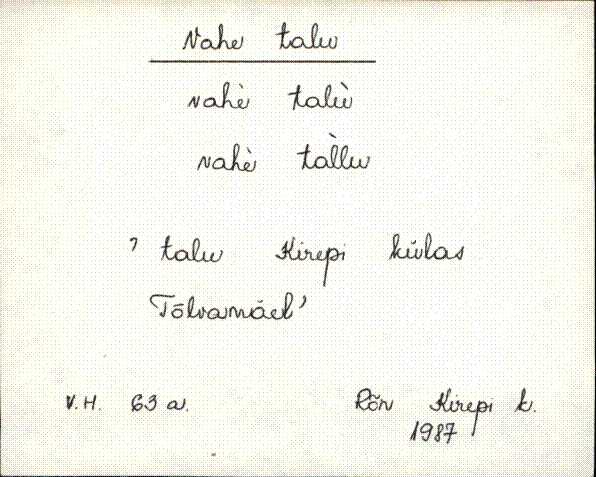 Vahe talu
vahè talù
vahè tàllu
’ talu Kirepi külas
Tõlvamäel’
V.H. 63 a. Rõn Kirepi k.
1987